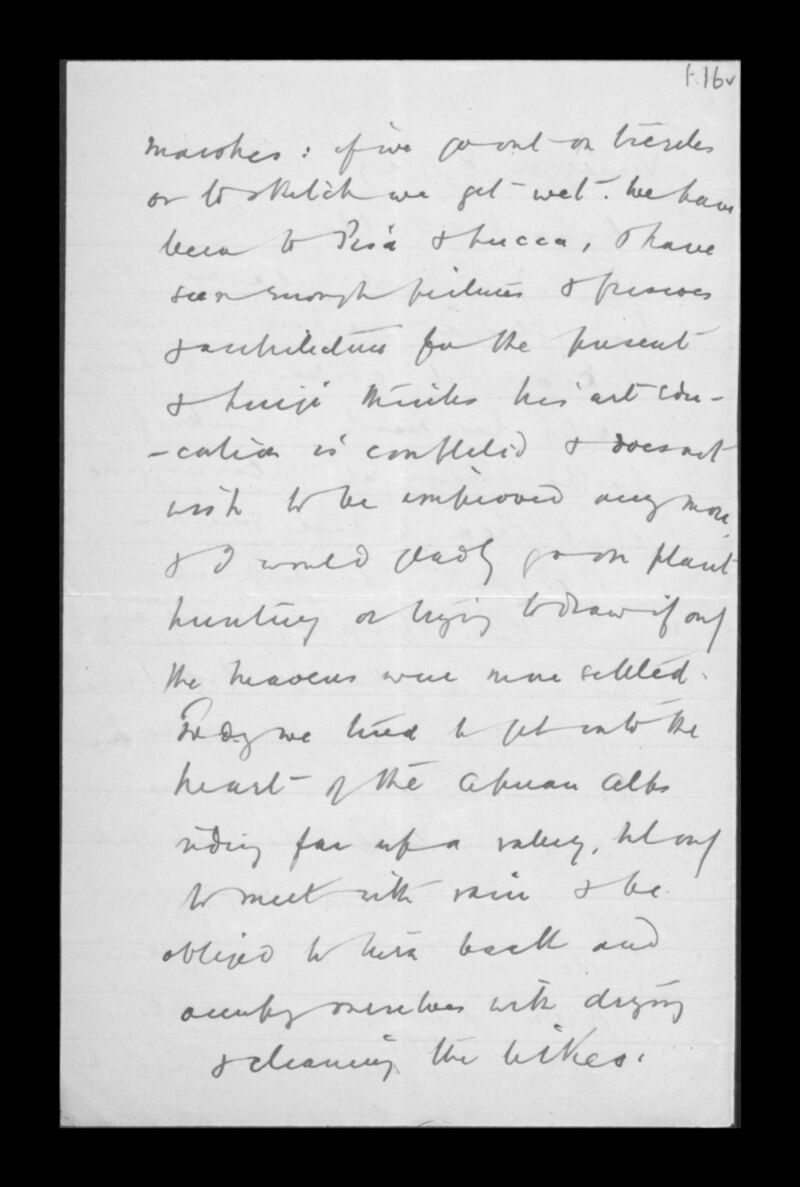 f.16v
marshes: if we go out on bicycles
or to sketch we get wet. We have
been to Pisa & Lucca, & have
seen enough pictures & frescoes
& architecture for the present
& Luigi thinks his art edu-
-cation is completed & does not
wish to be improved any more
& I would gladly go on plant
hunting or trying to draw if only
the heavens were more settled.
To day we tried to get into the
heart of the Apuan Alps
riding far up a valley, but only
to meet with rain & be
obliged to turn back and
occupy ourselves with drying
& cleaning the bikes.